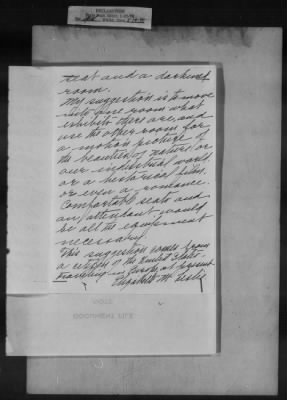 seat and a darkened
room.
My suggestion is to move
into one room what
exhibits there are, and
use the other room for
a motion picture of
the beauties of nature or
our industrial world
or a historical film,
or even a romance.
Comfortable seats and
an attendant would
be all the equipment
necessary.
This suggestion comes from
a citizen of the United States
travelling in Europe at present
Elizabeth M.